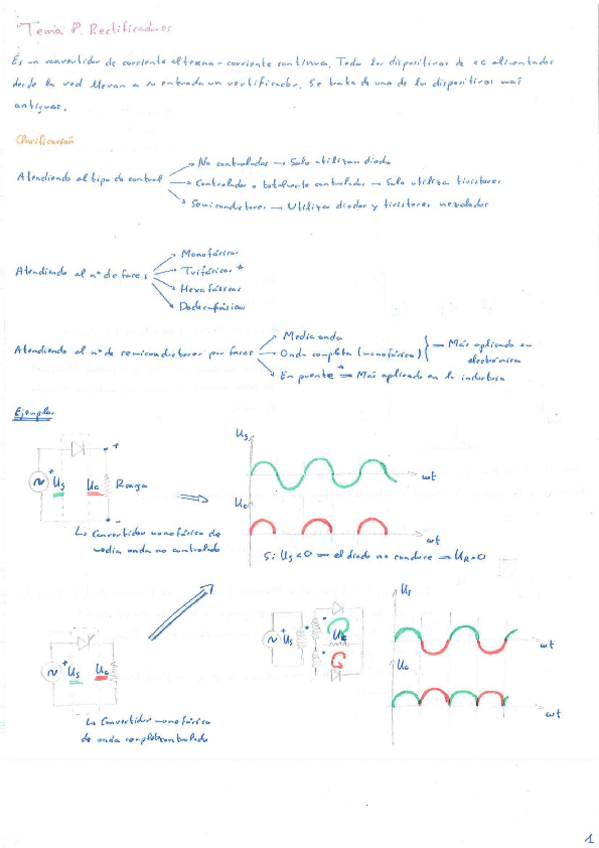 Tema 8. Rectificadores
Es un convertidor de corriente alterna - corriente continua. Todos los dispositivos de cc alimentados
desde la red llevan a su entrada un rectificador. Se trata de uno de los dispositivos más
antiguos.
Clasificación
Atendiendo al tipo de control
No controlados → Solo utilizan diodos
Controlados o totalmente controlados → Solo utiliza tiristores
Semiconductores → Utiliza diodos y tiristores mezclados
Atendiendo al nº de fases
Monofásicos
Trifásicos *
Hexafásicos
Dodecafásicos
Atendiendo al nº de semiconductores por fases
Media onda
Onda completa (monofásica)
Más aplicado en
electrónica
En puente * → Más aplicado en la industria
Ejemplos
Us
ωt
Us
Uo
Rcarga
Uo
ωt
↳ Convertidor monofásico de
media onda no controlado
Si Us<0 → el diodo no conduce → UR=0
Us
ωt
Us
Uo
Us
Uo
ωt
↳ Convertidor monofásico
de onda completa controlado
1